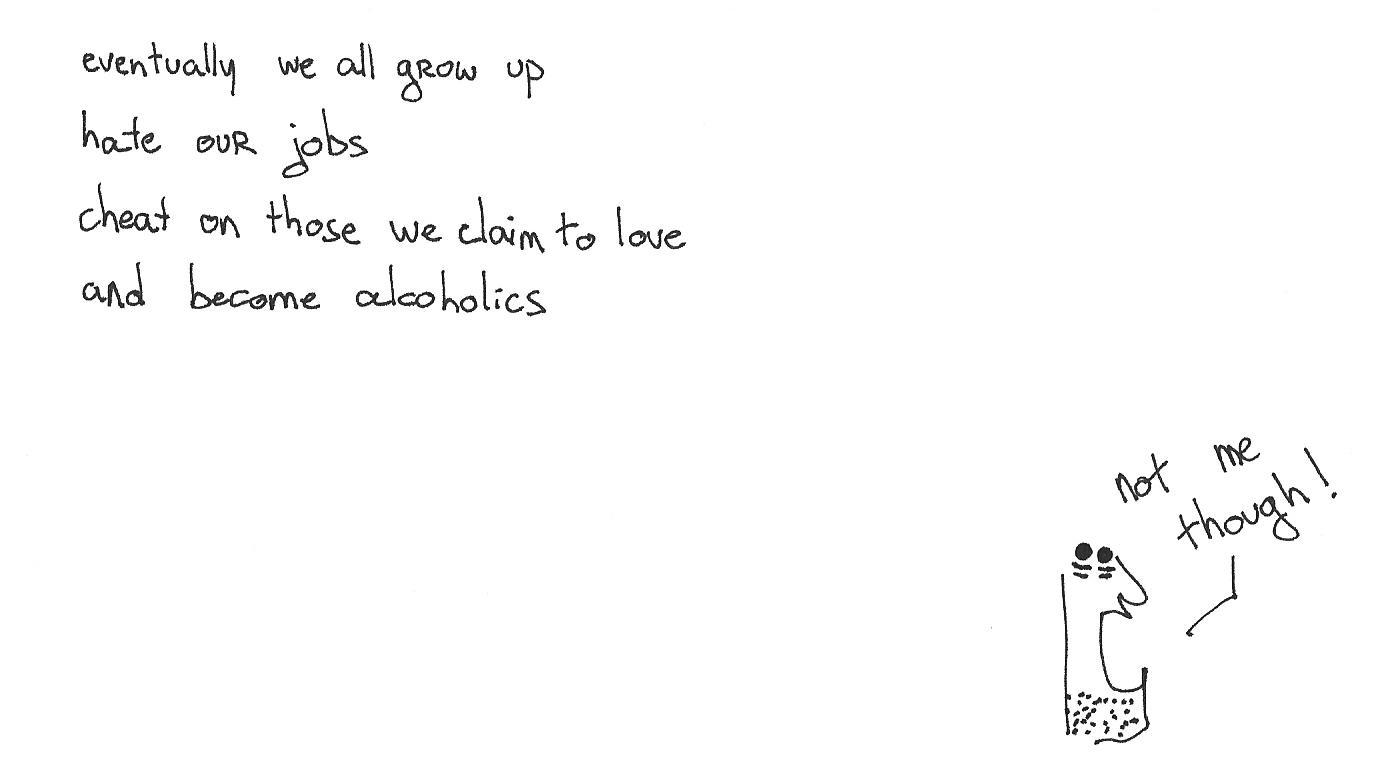 eventually we all grow up
hate our jobs
cheat on those we claim to love
and become alcoholics
not me
though!